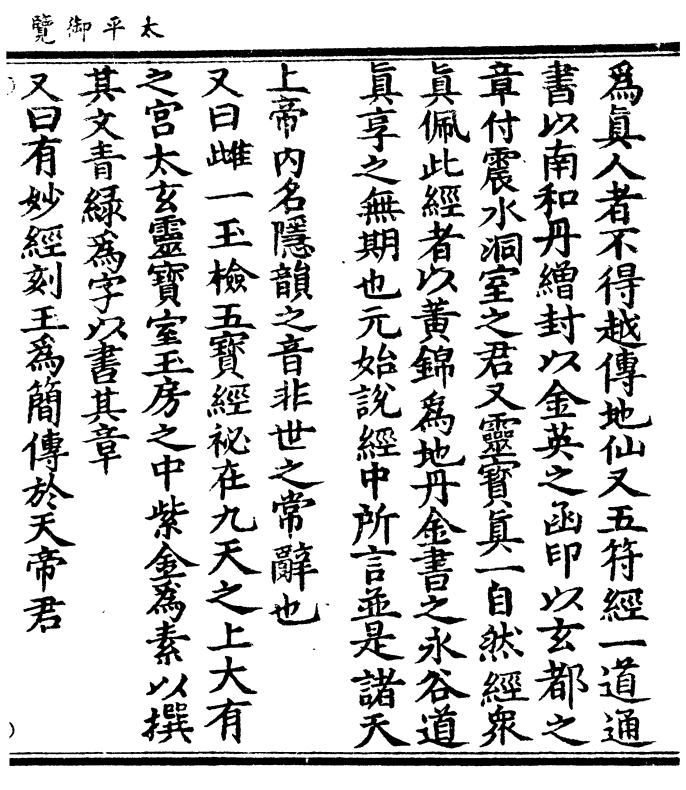 太平御覽
為眞人者不得越傳地仙又五符經一道通
書以南和丹繒封以金英之函印以玄都之
章付震水洞室之君又靈寳眞一自然經衆
眞佩此經者以黃錦為地丹金書之永谷道
眞享之無期也元始說經中所言並是諸天
上帝內名隱韻之音非世之常辭也
又曰雌一玉檢五寳經祕在九天之上大有
之宮太玄靈寳室玉房之中紫金為素以撰
其文青綠為字以書其章
又曰有妙經刻玉為簡傳於天帝君